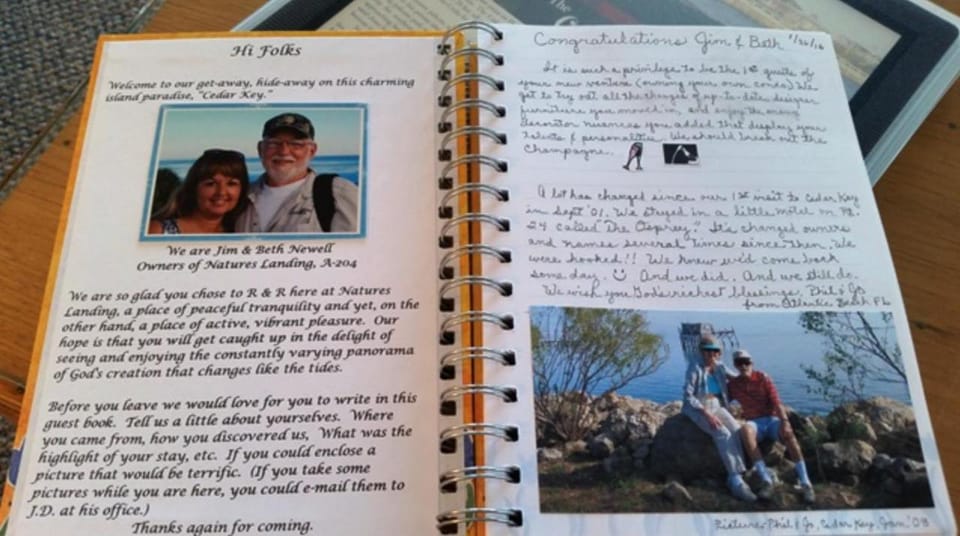 The
Hi Folks
Welcome to our get-away, hide-away on this charming
island paradise, "Cedar Key."
We are Jim & Beth Newell
Owners of Natures Landing, A-204
We are so glad you chose to R & R here at Natures
Landing, a place of peaceful tranquility and yet, on the
other hand, a place of active, vibrant pleasure. Our
hope is that you will get caught up in the delight of
seeing and enjoying the constantly varying panorama
of God's creation that changes like the tides.
Before you leave we would love for you to write in this
guest book. Tell us a little about yourselves. Where
you came from, how you discovered us, What was the
highlight of your stay, etc. If you could enclose a
picture that would be terrific. (If you take some
pictures while you are here, you could e-mail them to
J.D. at his office.)
Thanks again for coming.
Congratulations Jim & Beth
It is such a privilege to be the 1st guests of
your new venture (owning your own condo). We
get to try out all the changes of up-to-date designer
furniture you moved in, and enjoy the many
decorator nuances you added that display your
talents & personalities. We should break out the
Champagne.
A lot has changed since our 1st visit to Cedar Key
in Sept '01. We stayed in a little motel on
24 called The Osprey." It's changed owners
and names several times since then. We
were hooked!! We knew we'd come back
some day. And we did. And we still do.
We wish you God's richest blessings, Phil & Jo
from Atlantic Beach FL
Picture: Phil & Jo, Cedar Key, Jan '08